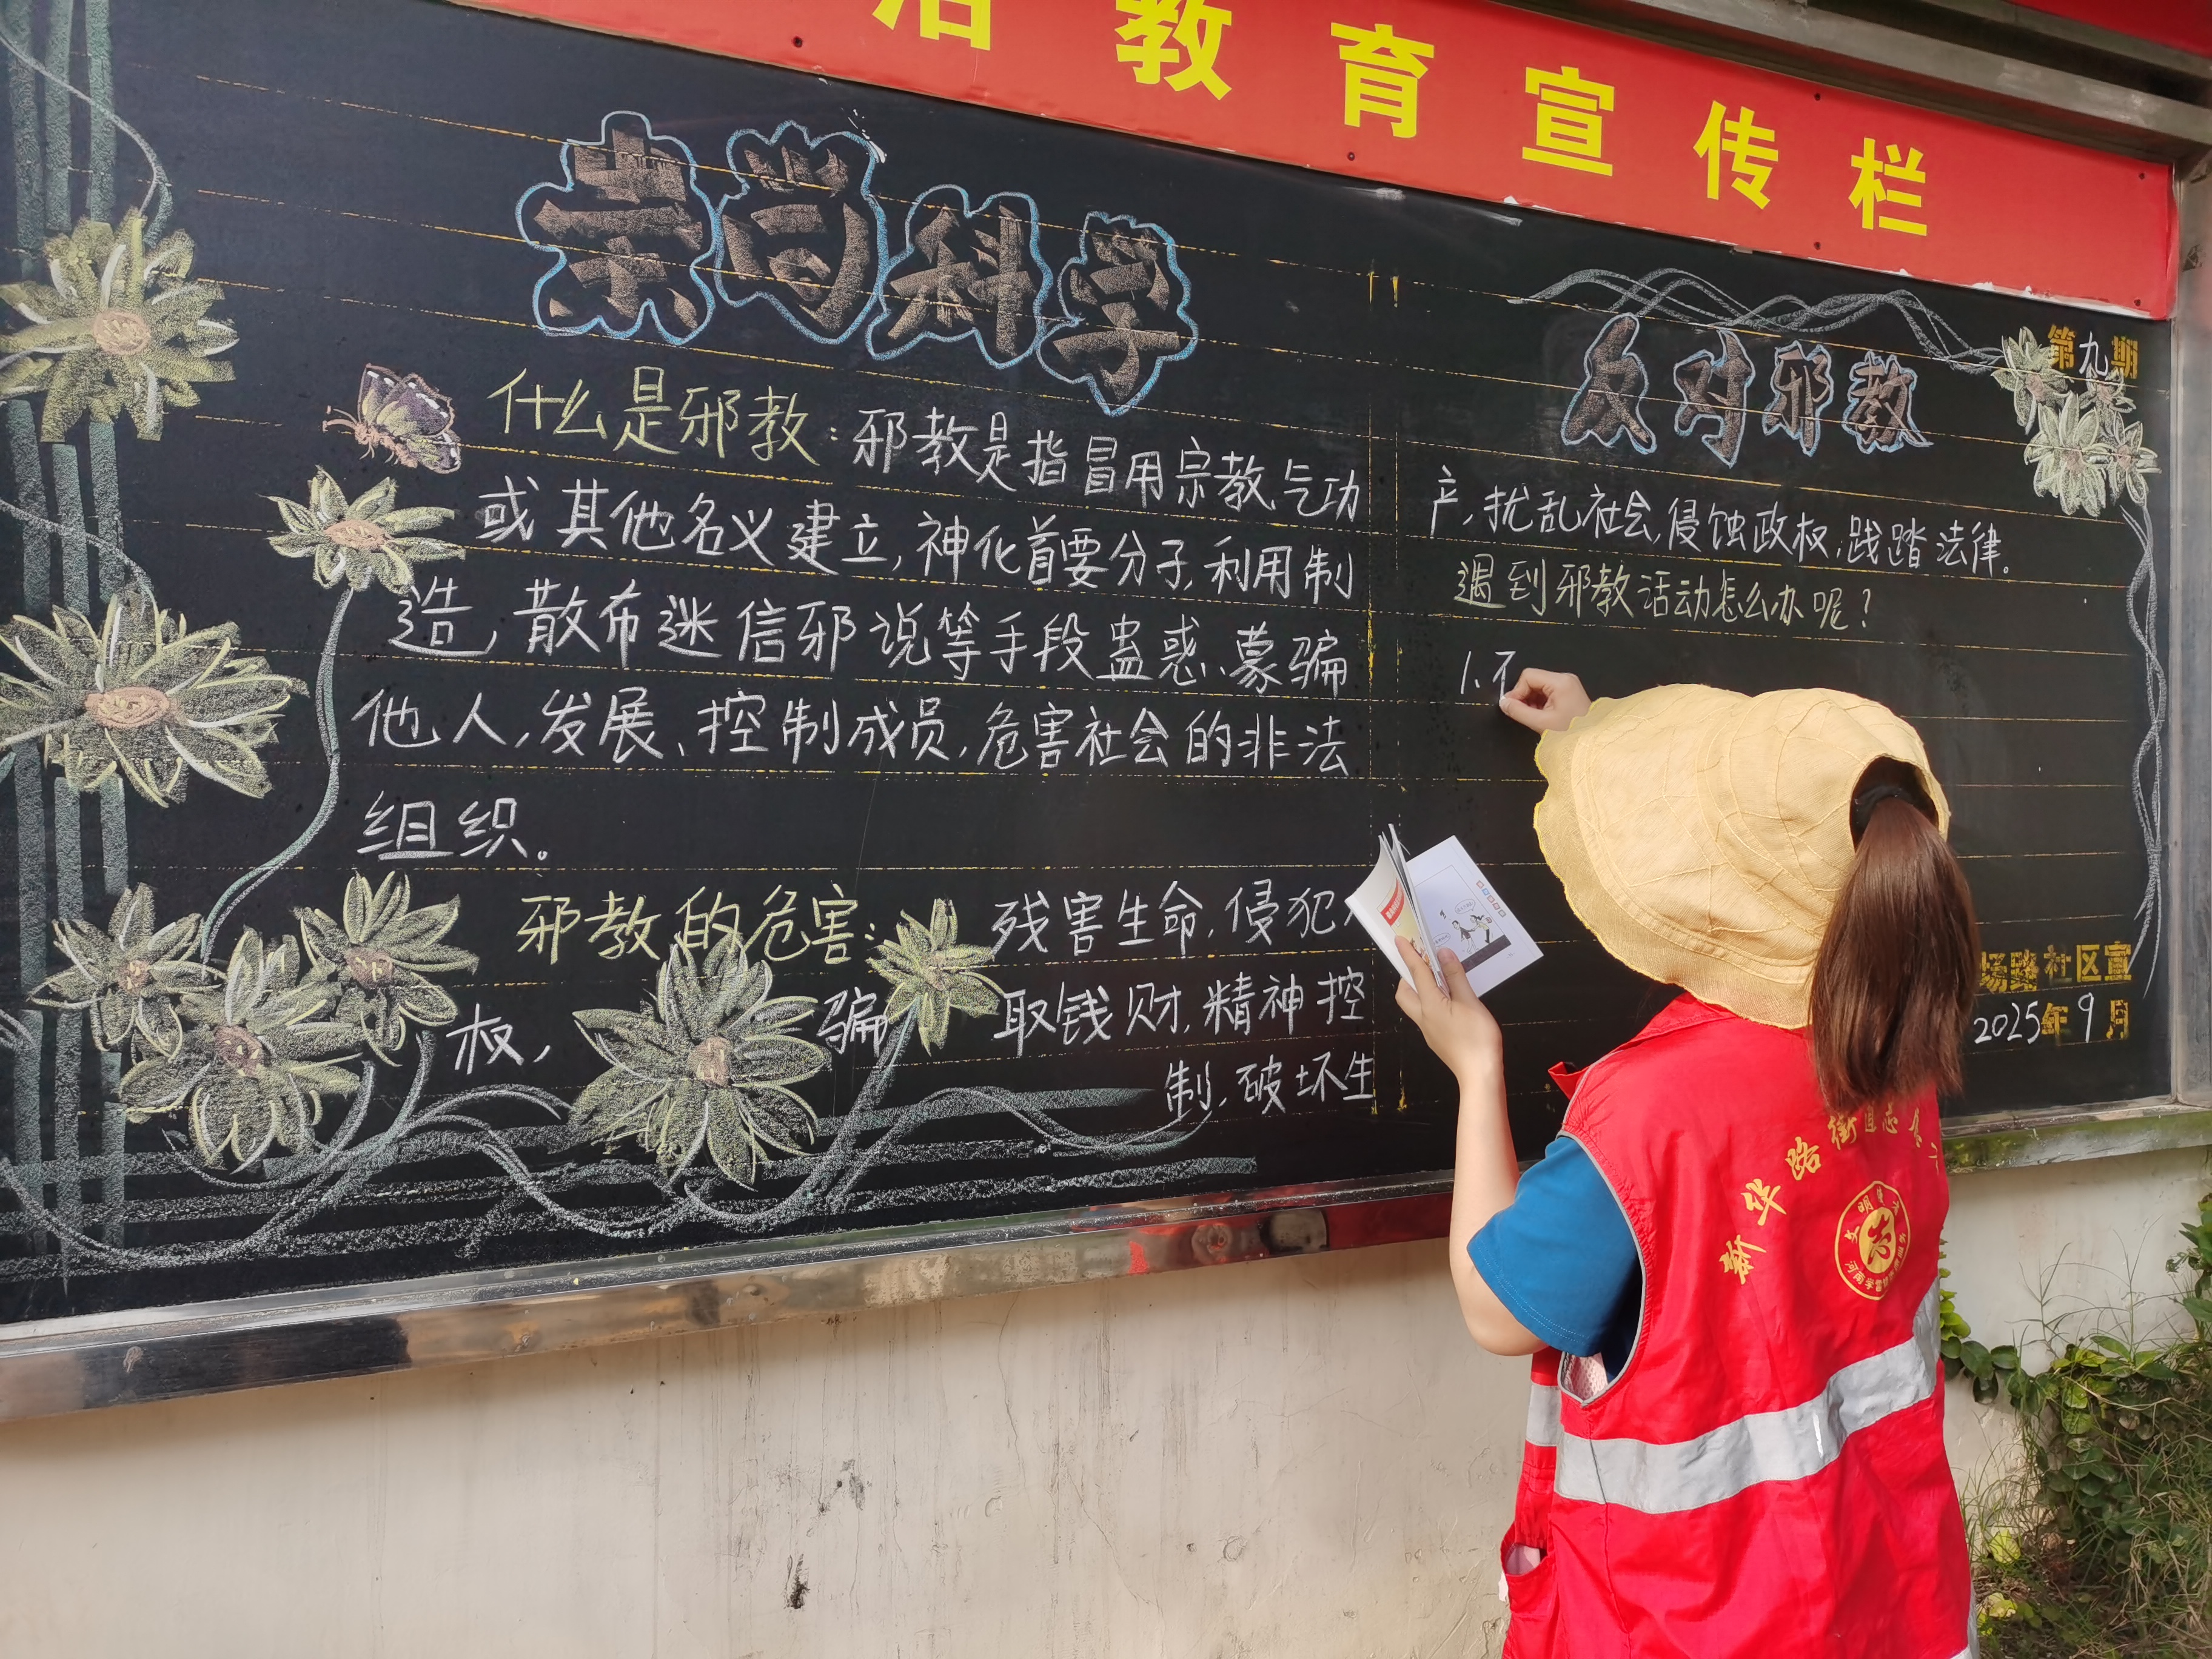 教育宣传栏
崇尚科学
什么是邪教:邪教是指冒用宗教、气功
或其他名义建立,神化首要分子,利用制
造,散布迷信邪说等手段蛊惑、蒙骗
他人,发展、控制成员,危害社会的非法
组织。
邪教的危害: 残害生命,侵犯
权, 骗 取钱财,精神控
制,破坏生
反对邪教
第九期
产,扰乱社会,侵蚀政权,践踏法律。
遇到邪教活动怎么办呢?
1、不
场路社区宣
2025年9月
新华路街道志
文明